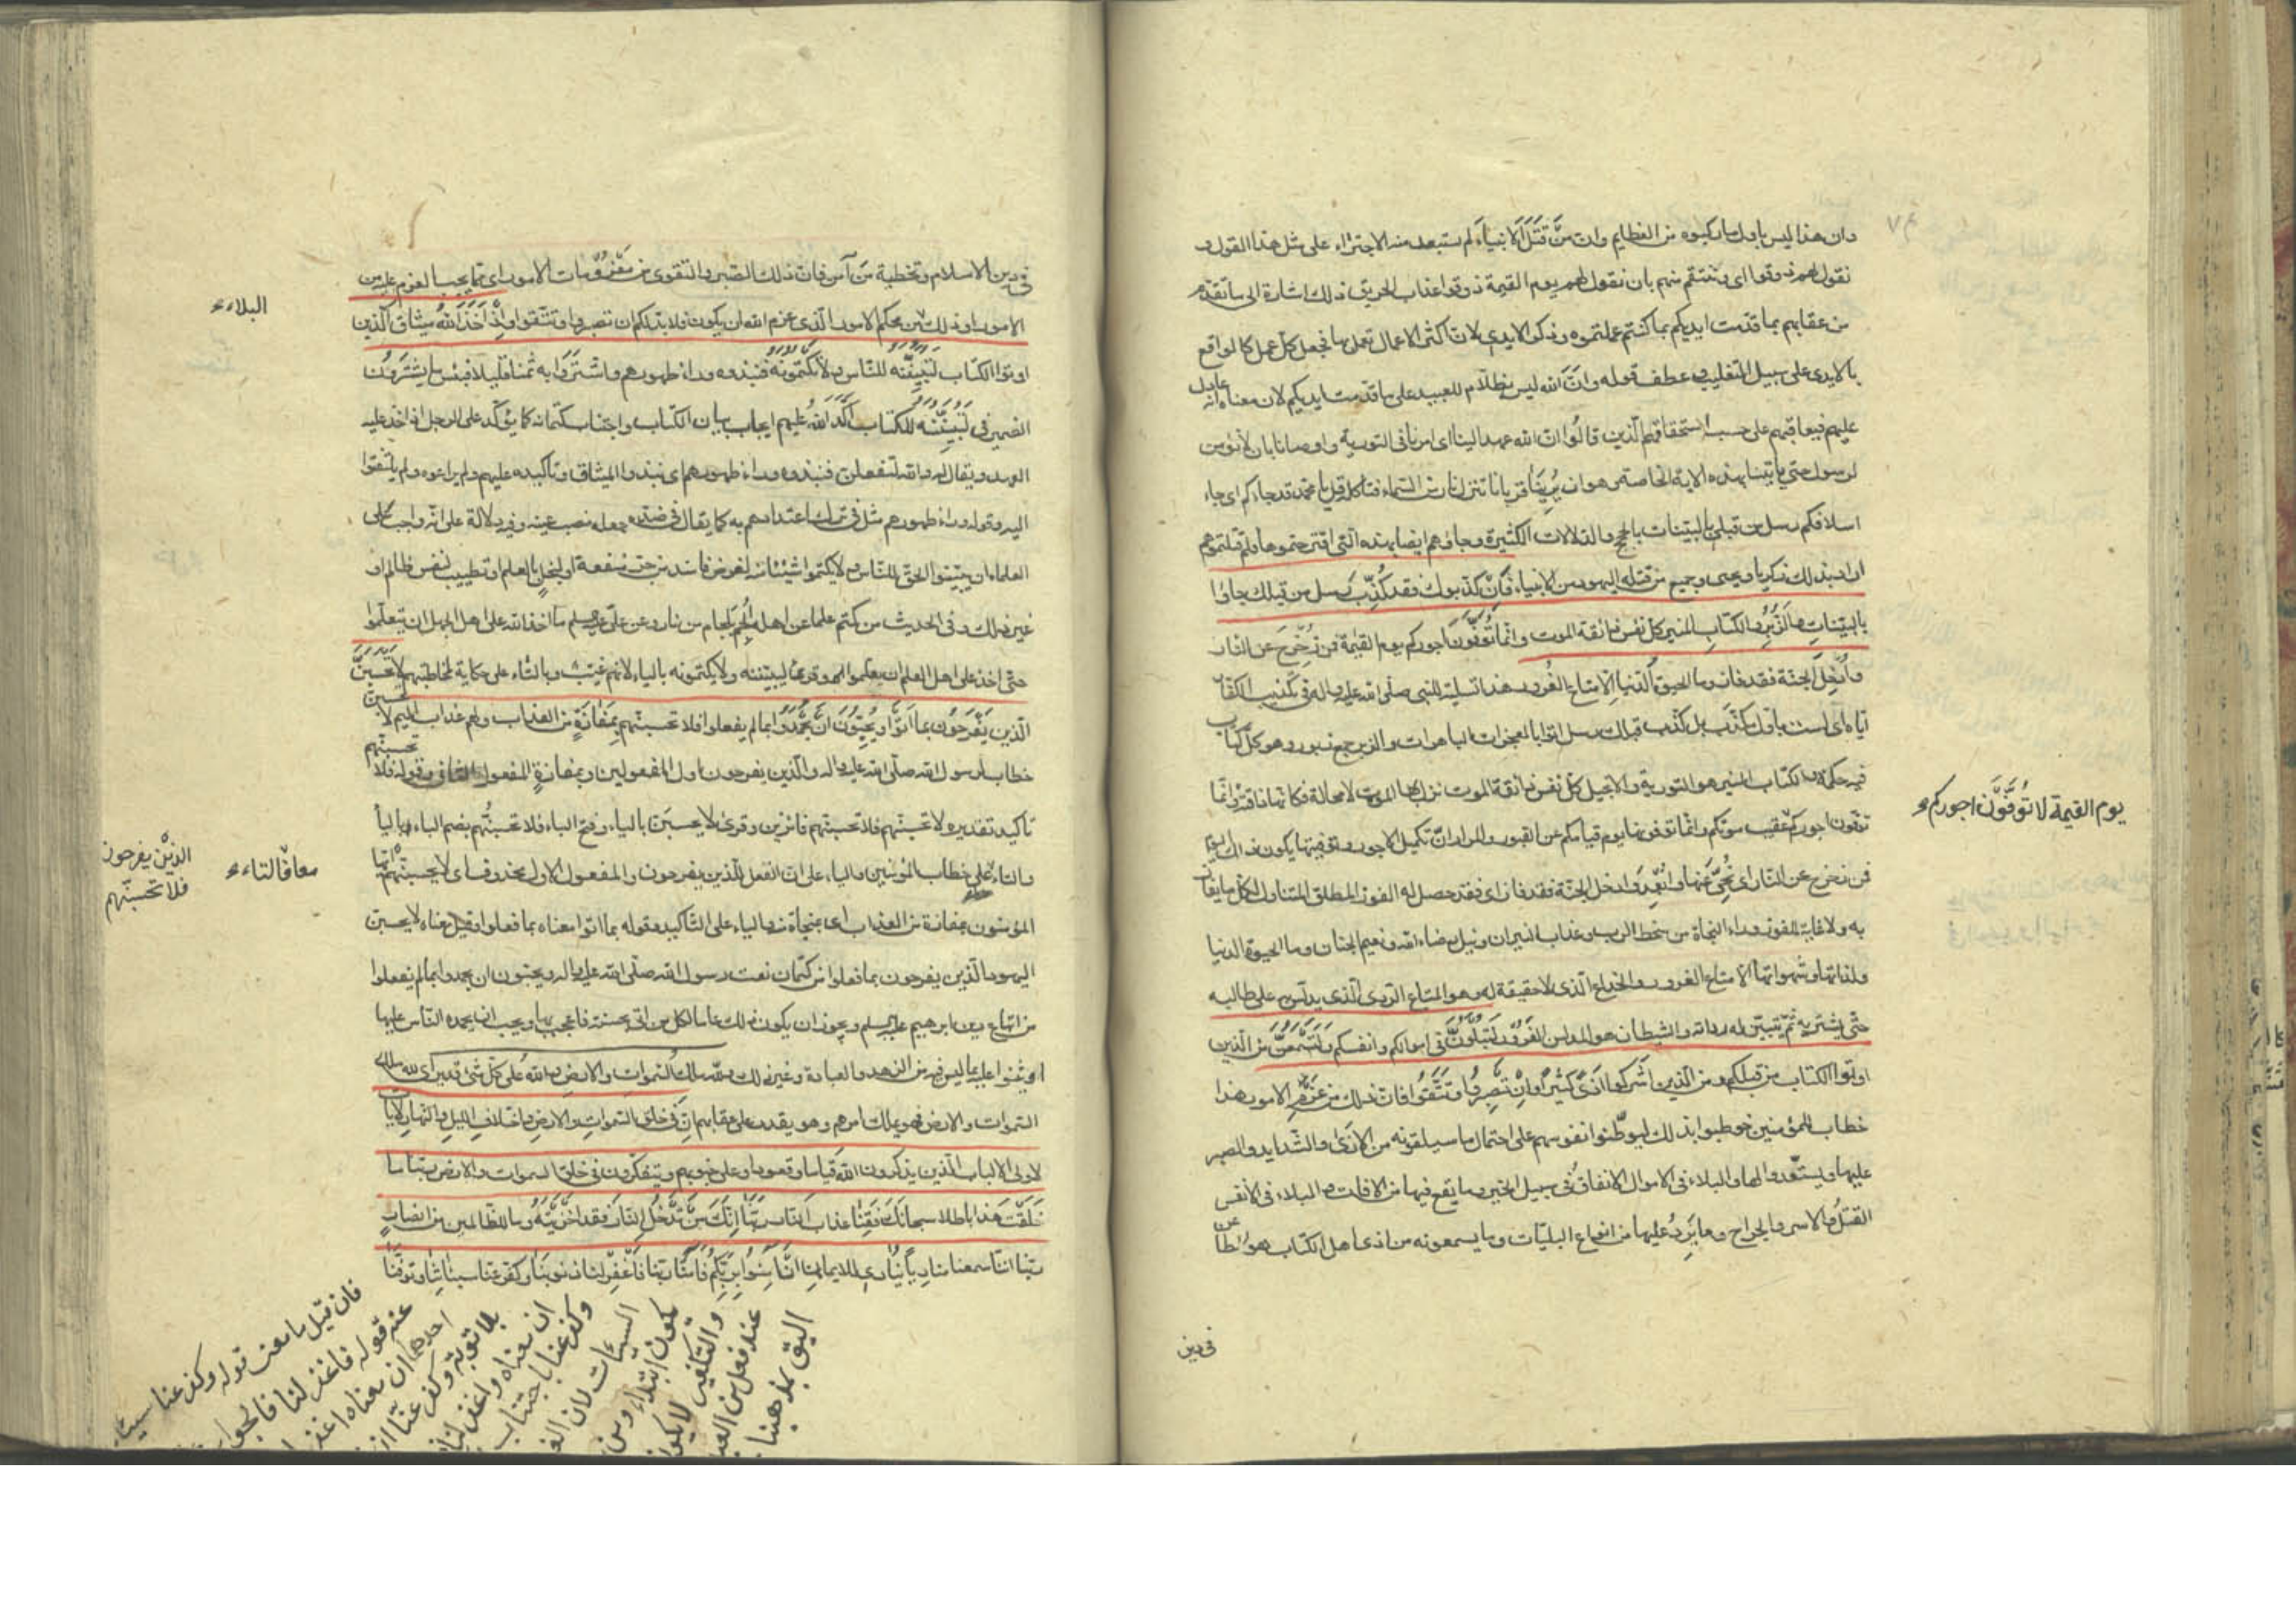 وان هذا ليس باول ما ركبوه من العظايم وان من قتل الانبياء لم يستبعد منه الاجتراء على مثل هذا القول و
نقول لهم ذوقوا اى وننتقم منهم بان نقول لهم يوم القيمة ذوقوا عذاب الحريق ذلك اشارة الى ما تقدم
من عقابهم بما قدمت ايديكم بما كنتم عملتموه وذكر الايدى لان اكثر الاعمال تعمل بها فجعل كل عمل كالواقع
بالايدى على سبيل التغليب وعطف قوله وان الله ليس بظلام للعبيد على ما قدمت ايديكم لان معناه انه عادل
عليهم فيعاقبهم على حسب استحقاقهم الذين قالوا ان الله عهد الينا اى امرنا فى التورية واوصانا بان لا نؤمن
لرسول حتى ياتينا بهذه الاية الخاصة وهو ان يرينا قربانا تنزل نار من السماء فتاكله قل يا محمد قد جاءكم اى جاء
اسلافكم رسل من قبلى بالبينات بالحجج والدلالات الكثيرة وجاؤهم ايضا بهذه التى اقترحتموها فلم قتلتموهم
اراد بذلك زكريا ويحيى وجميع من قتله اليهود من الانبياء فَاِنْ كذبوك فقد كُذِّبَ رسل من قبلك جاؤا
بالبينات والزُّبُر والكتاب المنير كل نفس ذائقة الموت وانما تُوَفَّوْنَ اجوركم يوم القيمة فمن زُحْزِحَ عن النار
واُدْخِلَ الجنة فقد فاز وما الحيوة الدنيا الا متاع الغُرُور هذا تسلية للنبى صلى الله عليه واله فى تكذيب الكفار
اياه اى لست باول مكذَّب بل كذب قبلك رسل اتوا بالمعجزات الباهرات والزبر جمع زبور وهو كل كتاب
فيه حكمة والكتاب المنير هو التورية والانجيل كل نفس ذائقة الموت نزل بها الموت لا محالة فكانها ذاقته وانما
توفون اجوركم عقيب موتكم وانما توفونها يوم قيامكم عن القبور والمراد ان تكميل الاجور وتوفيتها يكون ذلك اليوم
فمن زحزح عن النار اى نُحِّىَ عنها واُبْعِدَ وادخل الجنة فقد فاز اى فقد حصل له الفوز المطلق المتناول لكل ما يفاز
به ولا غاية للفوز وراء النجاة من سخط الرب وعذاب النيران ونيل رضاء الله ونعيم الجنان وما الحيوة الدنيا
ولذاتها وشهواتها الا متاع الغرور والخداع الذى لا حقيقة له وهو المتاع الردى الذى يدلس على طالبه
حتى يشتريه ثم يتبين له ردائته والشيطان هو المدلس الغرور لَتُبْلَوُنَّ فى اموالكم وانفسكم ولَتَسْمَعُنَّ من الذين
اوتوا الكتاب من قبلكم ومن الذين اشركوا اذىً كثيرًا وان تصبروا وتتقوا فان ذلك من عزم الامور هذا
خطاب للمؤمنين خوطبوا بذلك ليوطّنوا نفوسهم على احتمال ما سيلقونه من الاذى والشدايد والصبر
عليها ويستعدوا لها والبلاء فى الاموال الانفاق فى سبيل الخير وما يقع فيها من الافات والبلاء فى الانفس
القتل والاسر والجراح وما يَرِدُ عليها من انواع البليات وما يسمعونه من اذى اهل الكتاب هو الطعن
فى دين
يوم القيمة لا تُوَفَّوْنَ اجوركم
فى دين الاسلام وتخطية من آمن فان ذلك الصبر والتقوى من معزومات الامور اى مما يجب العزم عليه من
الامور او ذلك من محكم الامور الذى عزم الله ان يكون فلا بد لكم ان تصبروا وتتقوا واِذْ اَخَذَ اللهُ ميثاق الذين
اوتوا الكتاب لتبيننه للناس ولا تكتمونه فنبذوه وراء ظهورهم واشتروا به ثمنا قليلا فبئس ما يشترون
الضمير فى لتبيننه للكتاب اكّد الله عليهم ايجاب بيان الكتاب واجتناب كتمانه كما يؤكد على الرجل اذا اخذ عليه
العهد ويقال له والله لتفعلن فنبذوه وراء ظهورهم اى نبذوا الميثاق وتاكيده عليهم ولم يراعوه ولم يلتفتوا
اليه وقوله وراء ظهورهم مثل فى ترك اعتدادهم به كما يقال فى ضده جعله نصب عينه وفيه دلالة على انه واجب على
العلماء ان يبيّنوا الحق للناس ولا يكتموا شيئا منه لغرض فاسد من جرّ منفعة او لبخل بالعلم او تطييب لنفس ظالم او
غير ذلك وفى الحديث من كتم علما عن اهله اُلجم بلجام من نار وعن على عليه السلم ما اخذ الله على اهل الجهل ان يتعلموا
حتى اخذ على اهل العلم ان يعلموا وقرئ ليبيننه ولا يكتمونه بالياء لانهم غيّب وبالتاء على حكاية مخاطبتهم لا تحسبن
الذين يفرحون بما اتوا ويحبون ان يحمدوا بما لم يفعلوا فلا تحسبنهم بمفازة من العذاب ولهم عذاب اليم لا تحسبن
خطاب لرسول الله صلى الله عليه واله والذين يفرحون اول المفعولين وبمفازة المفعول الثانى وقوله فلا تحسبنهم
تاكيد تقديره لا تحسبنهم فلا تحسبنهم فائزين وقرئ لا يحسبن بالياء وفتح الباء فلا تحسبنهم بضم الباء وبالياء
والتاء على خطاب المؤمنين والياء على ان الفعل للذين يفرحون والمفعول الاول محذوف اى لا يحسبنهم
المؤمنون بمفازة من العذاب اى بمنجاة منه والياء على التاكيد وقوله بما اتوا معناه بما فعلوا وقيل معناه لا يحسبن
اليهود الذين يفرحون بما فعلوا من كتمان نعت رسول الله صلى الله عليه واله ويحبون ان يحمدوا بما لم يفعلوا
من اتباع دين ابرهيم عليه السلم ويجوز ان يكون ذلك عاما لكل من اتى بحسنة فاعجب بها ويحب ان يحمده الناس عليها
او يثنوا عليه بما ليس فيه من الزهد والعبادة وغير ذلك ولله ملك السموات والارض والله على كل شئ قدير اى لله ملك
السموات والارض فهو يملك امرهم وهو يقدر على عقابهم ان فى خلق السموات والارض واختلاف الليل والنهار لايات
لاولى الالباب الذين يذكرون الله قياما وقعودا وعلى جنوبهم ويتفكرون فى خلق السموات والارض ربنا ما
خلقت هذا باطلا سبحانك فقنا عذاب النار ربنا انك من تدخل النار فقد اخزيته وما للظالمين من انصار
ربنا اننا سمعنا مناديا ينادى للايمان ان آمنوا بربكم فآمنا ربنا فاغفر لنا ذنوبنا وكفر عنا سيئاتنا وتوفنا
البلاء
معا والتاء
الذين يفرحون
فلا تحسبنهم
فان قيل ما معنى قوله وكفر عنا سيئا
عند قوله فاغفر لنا فالجواب
احدهما ان معناه اغفر
بلا توبة وكفر عنا
ان معناه واغفر لنا
وكفر عنا باجتناب
السيئات لان
يكون ابتداء ومن
والتكفير لا يكون
عند فعل من العبد
اليق بمذهبنا